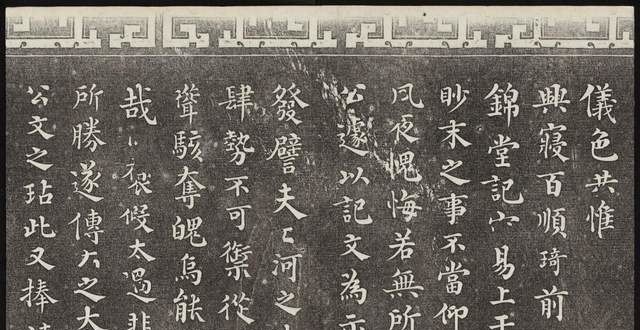 儀色共惟
興寢百順琦前
錦堂記容易上干
眇末之事不當仰
夙夜愧悔若無所
公遽以記文為示
發譬夫江河之
肆勢不可禦從
聳駭奪魄烏能
哉褒假太過非
所勝遂傳之大
公文之玷此又捧